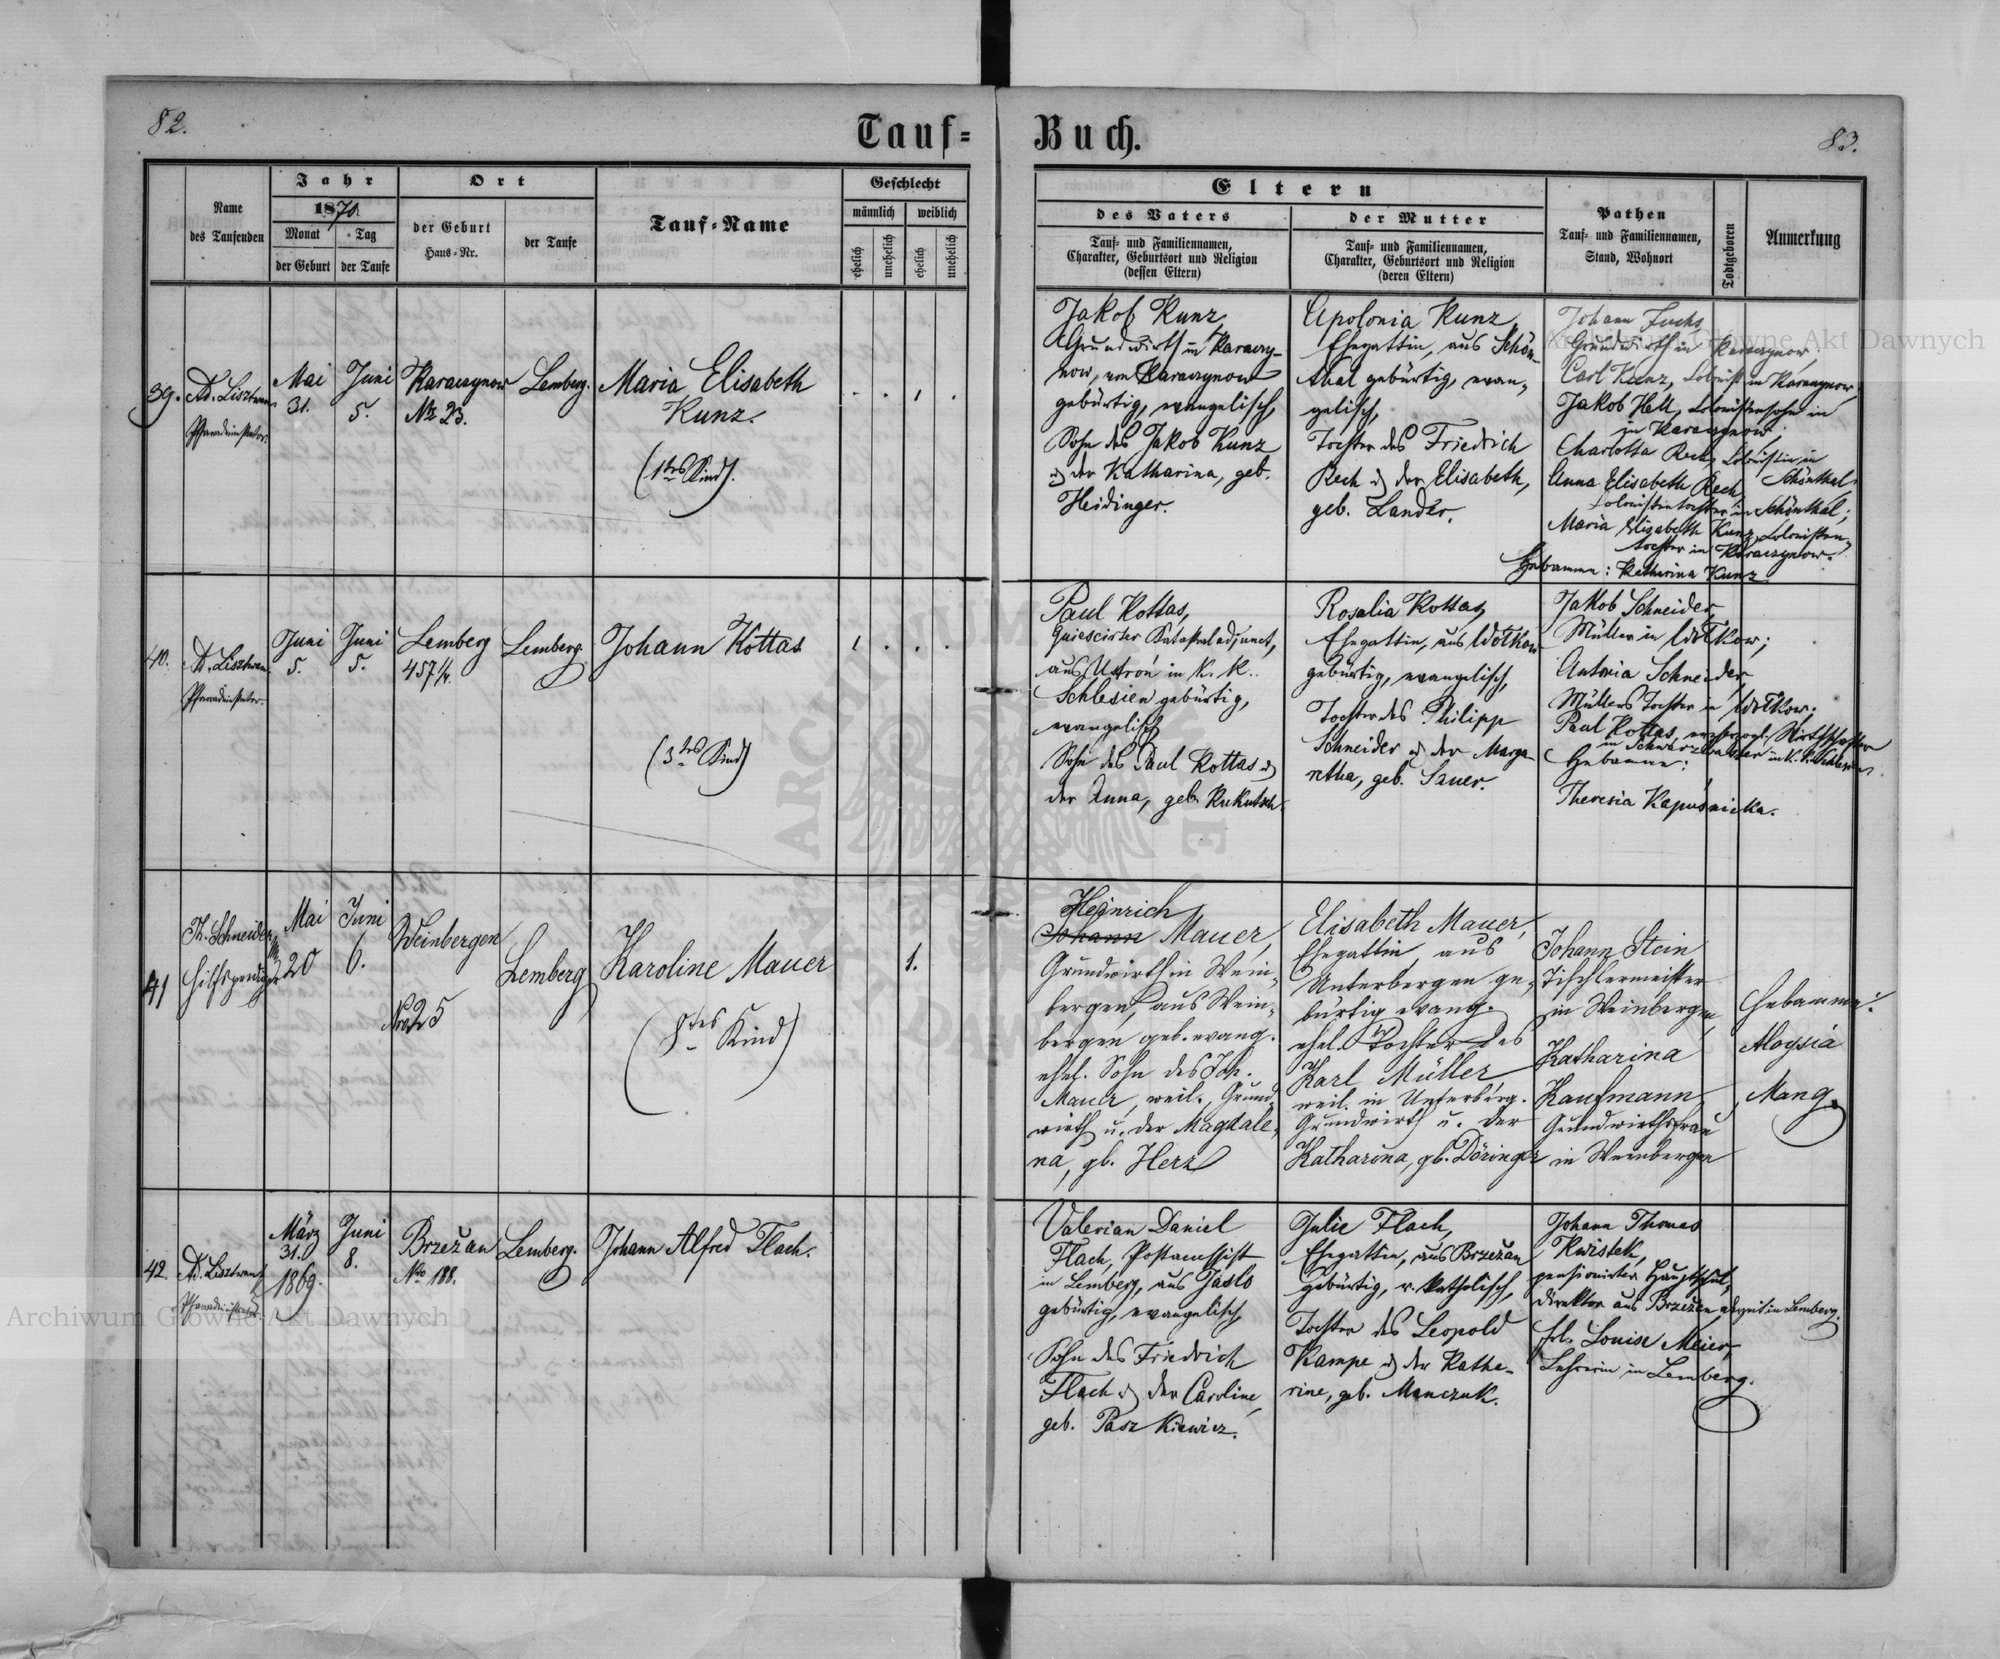 82.
Tauf-
Buch.
83.
Name
des Taufenden
Jahr
1870.
Monat
der Geburt
Tag
der Taufe
Ort
der Geburt
Haus-Nr.
der Taufe
Tauf-Name
Geschlecht
männlich
weiblich
ehelich
unehelich
ehelich
unehelich
Eltern
des Vaters
Tauf- und Familiennamen,
Charakter, Geburtsort und Religion
(dessen Eltern)
der Mutter
Tauf- und Familiennamen,
Charakter, Geburtsort und Religion
(deren Eltern)
Pathen
Tauf- und Familiennamen,
Stand, Wohnort
Todtgeboren
Anmerkung
39.
Ad. Lisztwan
Pfarradministrator
Mai
31.
Juni
5.
Karaczynow
No 23.
Lemberg.
Maria Elisabeth
Kunz.
(1tes Kind).
Jakob Kunz,
Grundwirth in Karaczy-
now, von Karaczynow
gebürtig, evangelisch,
Sohn des Jakob Kunz
u. der Katharina, geb.
Heidinger.
Apolonia Kunz,
Ehegattin, aus Schön-
thal gebürtig, evan-
gelisch,
Tochter des Friedrich
Rech u. der Elisabeth,
geb. Lander.
Johann Fuchs,
Grundwirth in Karaczynow,
Carl Kunz, Colonist in Karaczynow,
Jakob Hell, Colonistensohn in
in Karaczynow.
Charlotta Rech, Colonistin in
Schönthal
Anna Elisabeth Rech,
Colonistentochter in Schönthal;
Maria Elisabeth Kunz, Colonisten-
tochter in Karaczynow.
Hebamme: Katharina Kunz
40.
Ad. Lisztwan
Pfarradministrator.
Juni
5.
Juni
5.
Lemberg
457 1/4.
Lemberg.
Johann Kottas
(3tes Kind)
1
Paul Kottas,
Quiescirter Katastraladjunct,
aus Ustroń in K. K.
Schlesien gebürtig,
evangelisch,
Sohn des Paul Kottas u.
der Anna, geb. Kukutsch.
Rosalia Kottas,
Ehegattin, aus Wołkow
gebürtig, evangelisch,
Tochter des Philipp
Schneider u. der Marga-
retha, geb. Sauer.
Jakob Schneider,
Müller in Wołkow;
Antonia Schneider,
Müllers Tochter in Wołkow;
Paul Kottas,
Hebamme:
Theresia Kapuśnicka.
41
Th. Schneider
Hilfsprediger
Mai
20
Juni
6.
Weinbergen
Nro 25
Lemberg
Karoline Mauer
(8tes Kind)
1.
Heinrich
Johann Mauer,
Grundwirth in Wein-
bergen, aus Wein-
bergen geb. evang.
ehel. Sohn des Joh.
Mauer, weil. Grund-
wirth u. der Magdale-
na, gb. Herz
Elisabeth Mauer,
Ehegattin, aus
Unterbergen ge-
bürtig evang.
ehel. Tochter des
Karl Müller
weil. in Unterberg.
Grundwirth u. der
Katharina, gb. Döringer
Johann Stein
Tischlermeister
in Weinbergen,
Katharina
Kaufmann,
Grundwirthsfrau
in Weinbergen
Hebamme:
Aloysia
Mang.
42.
Ad. Lisztwan
Pfarradministrator
März
31.
1869.
Juni
8.
Brzeżan
Nro 188.
Lemberg.
Johann Alfred Flach.
Valerian Daniel
Flach, Postamtsist
in Lemberg, aus Jasło
gebürtig, evangelisch,
Sohn des Friedrich
Flach u. der Caroline,
geb. Paszkiewicz.
Julie Flach,
Ehegattin, aus Brzeżan
gebürtig, r. katholisch,
Tochter des Leopold
Kampe u. der Katha-
rine, geb. Manczuk.
Johann Thomas
Kwistek,
pensionirter Hauptschul-
direktor aus Brzeżan, derzeit in Lemberg.
Frl. Louise Meier,
Lehrerin in Lemberg.
Archiwum Główne Akt Dawnych
Archiwum Główne Akt Dawnych